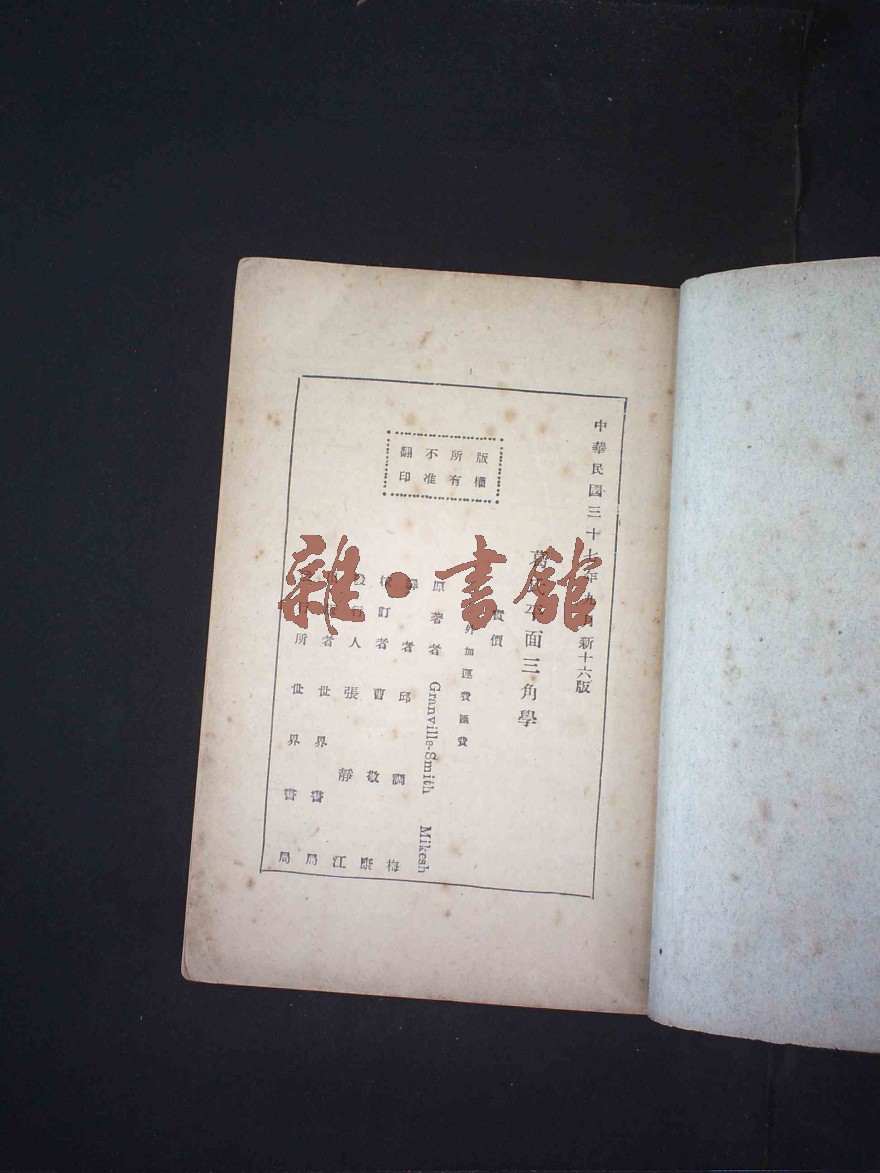 中華民國三十七年九月新十六版
葛氏平面三角學
實價
外加運費匯費
原著者 Granville-Smith Mikesh
譯者 邱調梅
校訂者 曹敬康
發行人 張靜江
者 世界書局
所 世界書局
版權所有
不准翻印
雜·書館